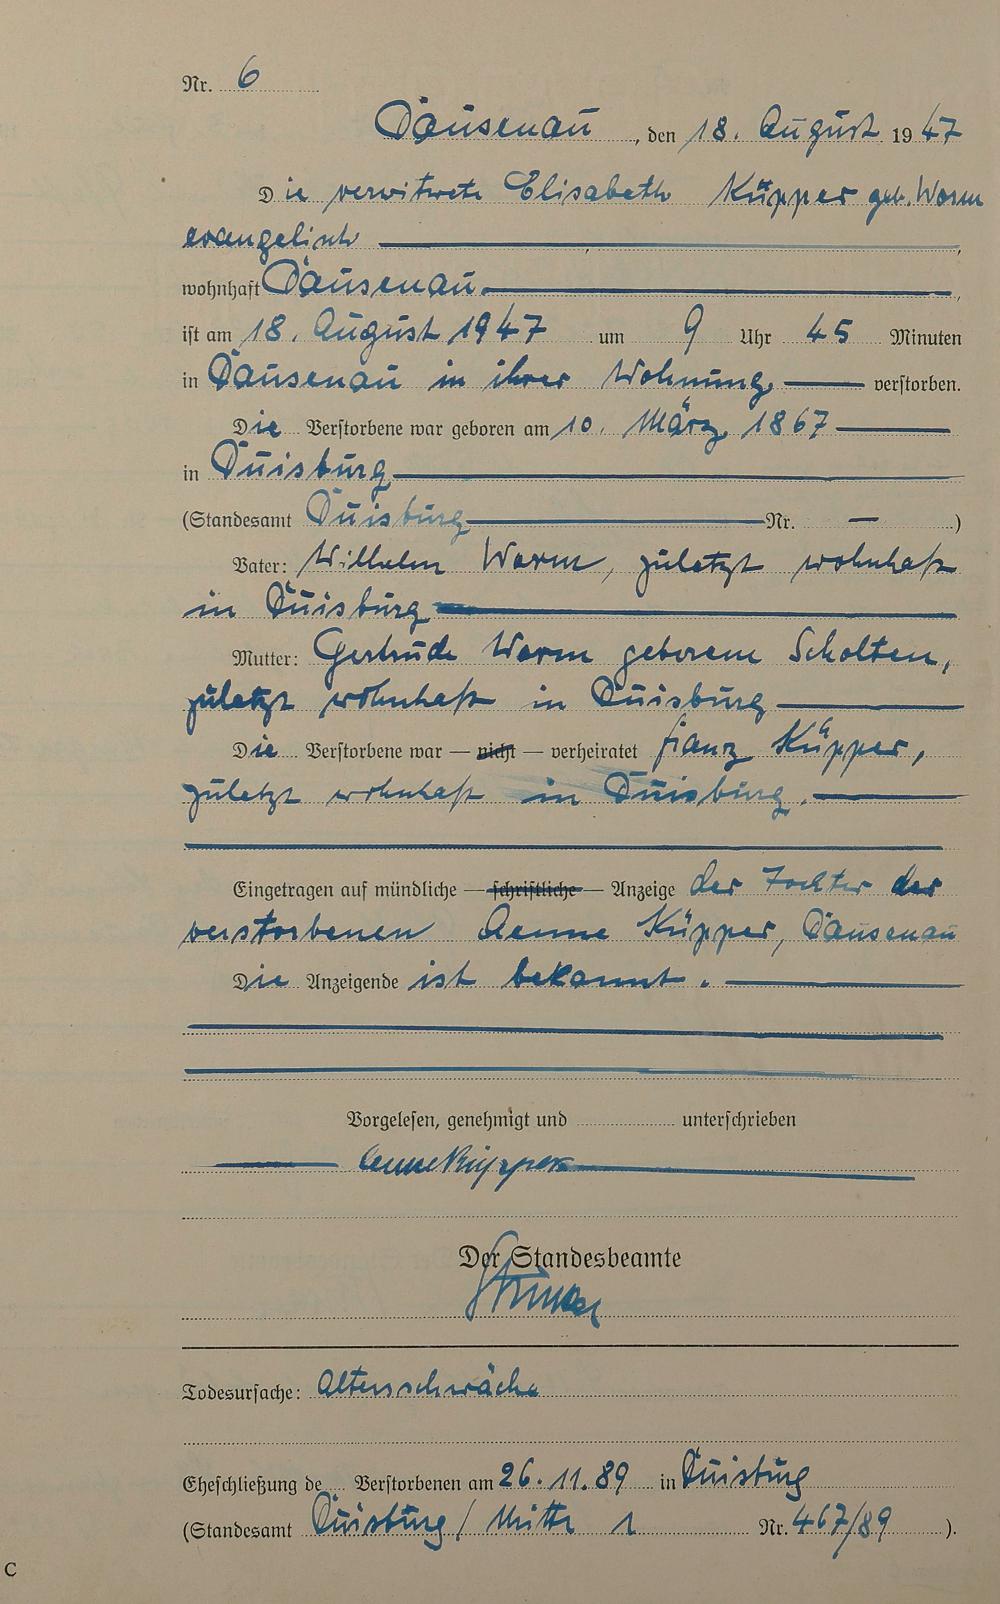 Nr. 6
Dausenau, den 18. August 1947
Die verwitwete Elisabeth Küpper geb. Worm
evangelisch
wohnhaft Dausenau
ist am 18. August 1947 um 9 Uhr 45 Minuten
in Dausenau in ihrer Wohnung verstorben.
Die Verstorbene war geboren am 10. März 1867
in Duisburg
(Standesamt Duisburg Nr. — )
Vater: Wilhelm Worm, zuletzt wohnhaft
in Duisburg
Mutter: Gertrude Worm geborene Scholten,
zuletzt wohnhaft in Duisburg
Die Verstorbene war — nicht — verheiratet Franz Küpper,
zuletzt wohnhaft in Duisburg.
Eingetragen auf mündliche — schriftliche — Anzeige der Tochter der
verstorbenen Aenne Küpper, Dausenau
Die Anzeigende ist bekannt.
Vorgelesen, genehmigt und unterschrieben
Aenne Küpper
Der Standesbeamte
Todesursache: Altersschwäche
Eheschließung de Verstorbenen am 26.11.89 in Duisburg
(Standesamt Duisburg / Mitte 1 Nr. 467/89 ).
C